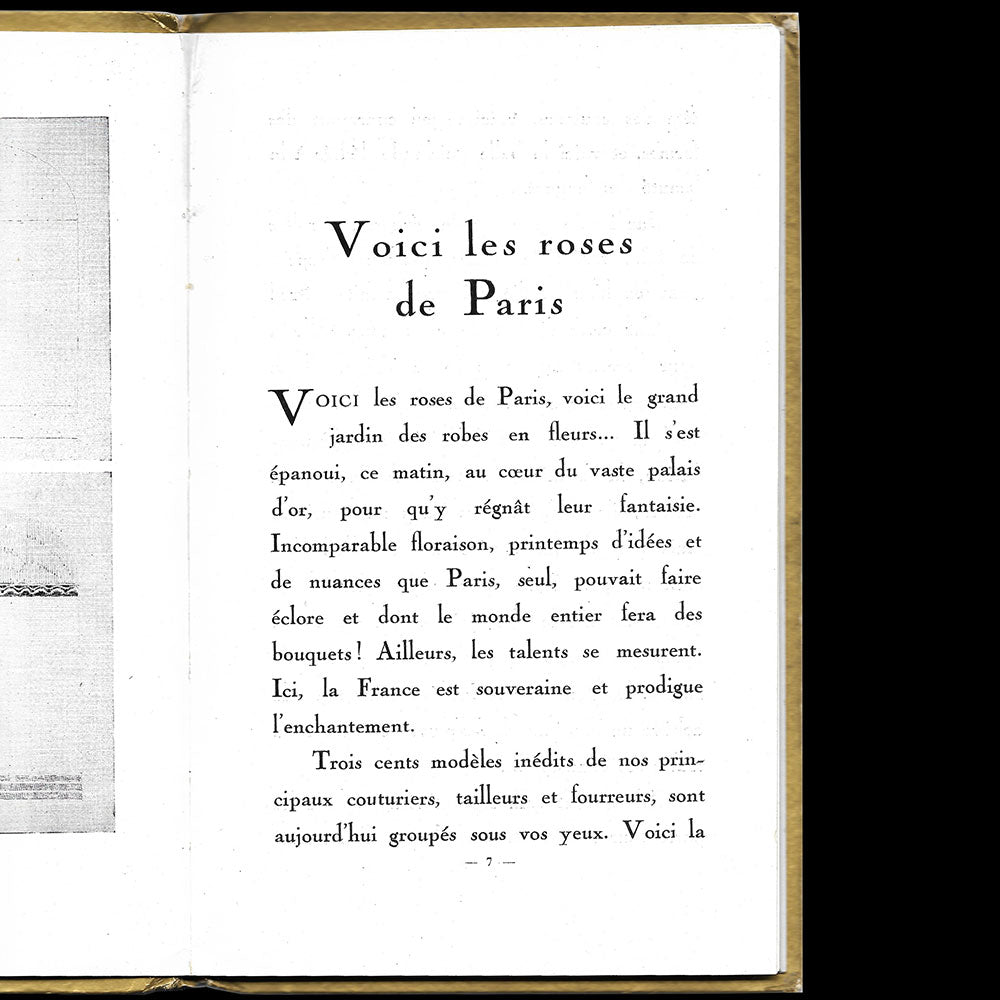 Voici les roses
de Paris
VOICI les roses de Paris, voici le grand
jardin des robes en fleurs... Il s'est
épanoui, ce matin, au cœur du vaste palais
d'or, pour qu'y régnât leur fantaisie.
Incomparable floraison, printemps d'idées et
de nuances que Paris, seul, pouvait faire
éclore et dont le monde entier fera des
bouquets ! Ailleurs, les talents se mesurent.
Ici, la France est souveraine et prodigue
l'enchantement.
Trois cents modèles inédits de nos prin-
cipaux couturiers, tailleurs et fourreurs, sont
aujourd'hui groupés sous vos yeux. Voici la
— 7 —